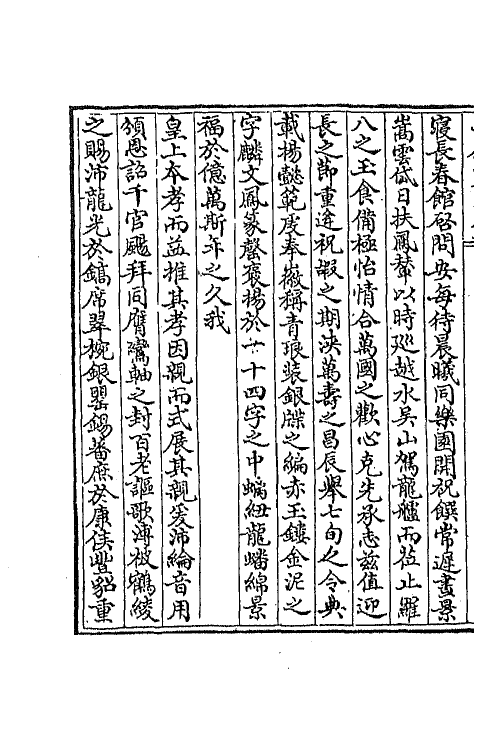 寢長春館啓問安每待晨曦同樂園開祝饌常遲晝景
嵩雲岱日扶鳳輦以時廵越水吳山駕龍艫而莅止羅
八之玉食備極怡情合萬國之歡心克先承志兹值迎
長之節重逢祝嘏之期浹萬壽之昌辰舉七旬之令典
載揚懿範疊奉徽稱青琅裝銀牒之編赤玉鏤金泥之
字麟文鳳篆罄褒揚於 十四字之中螭紐龍蟠綿景
福於億萬斯年之久我
皇上本孝而益推其孝因親而式展其親爰沛綸音用
頒恩詔千官颺拜同膺鸞軸之封百老謳歌溥被鶴綾
之賜沛龍光於鎬席翠椀銀罌錫蕃庶於康侯豐貂重